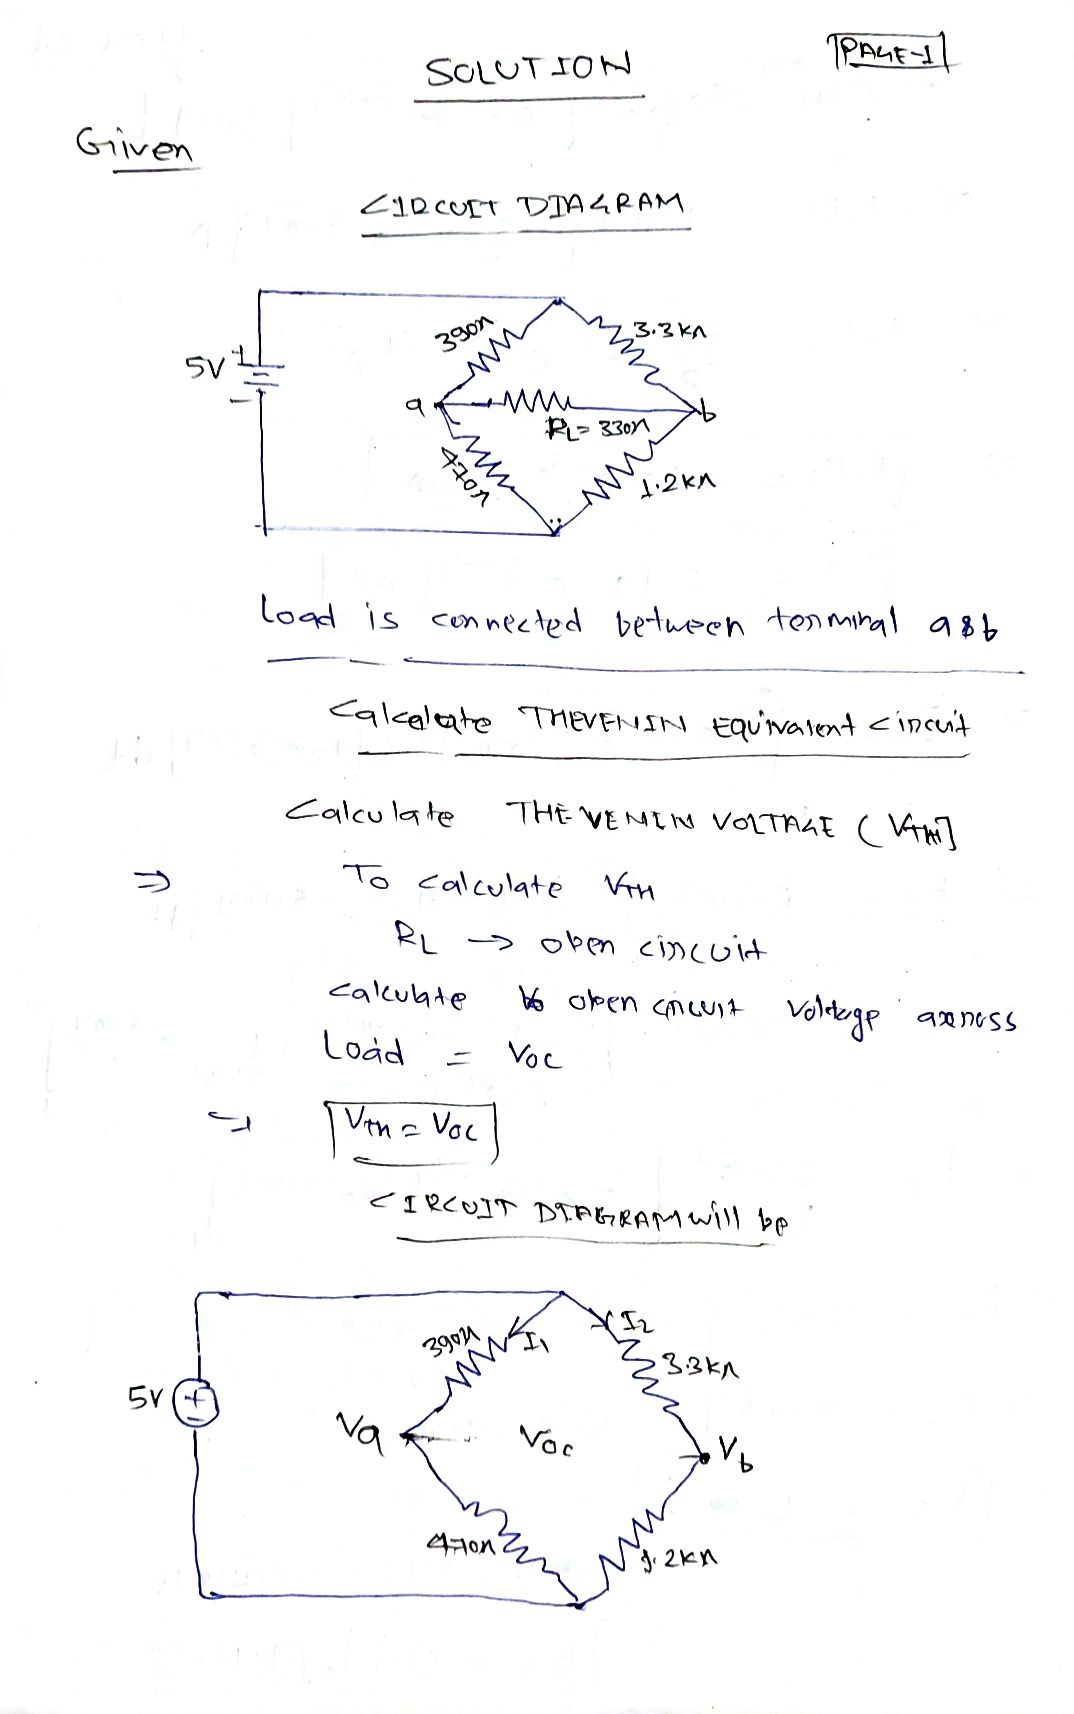 PAGE-1
SOLUTION
Given
CIRCUIT DIAGRAM
390Ω
3.3 kΩ
5V
+
-
a
b
RL = 330Ω
470Ω
1.2kΩ
Load is connected between terminal a & b
Calculate THEVENIN Equivalent circuit
Calculate THEVENIN VOLTAGE (VTH]
⇒ To calculate VTH
RL → open circuit
calculate open circuit Voltage across
Load = VOC
⇒ VTH = VOC
CIRCUIT DIAGRAM will be
390Ω
I1
I2
3.3kΩ
5V
+
-
Va
Voc
Vb
470Ω
1.2kΩ